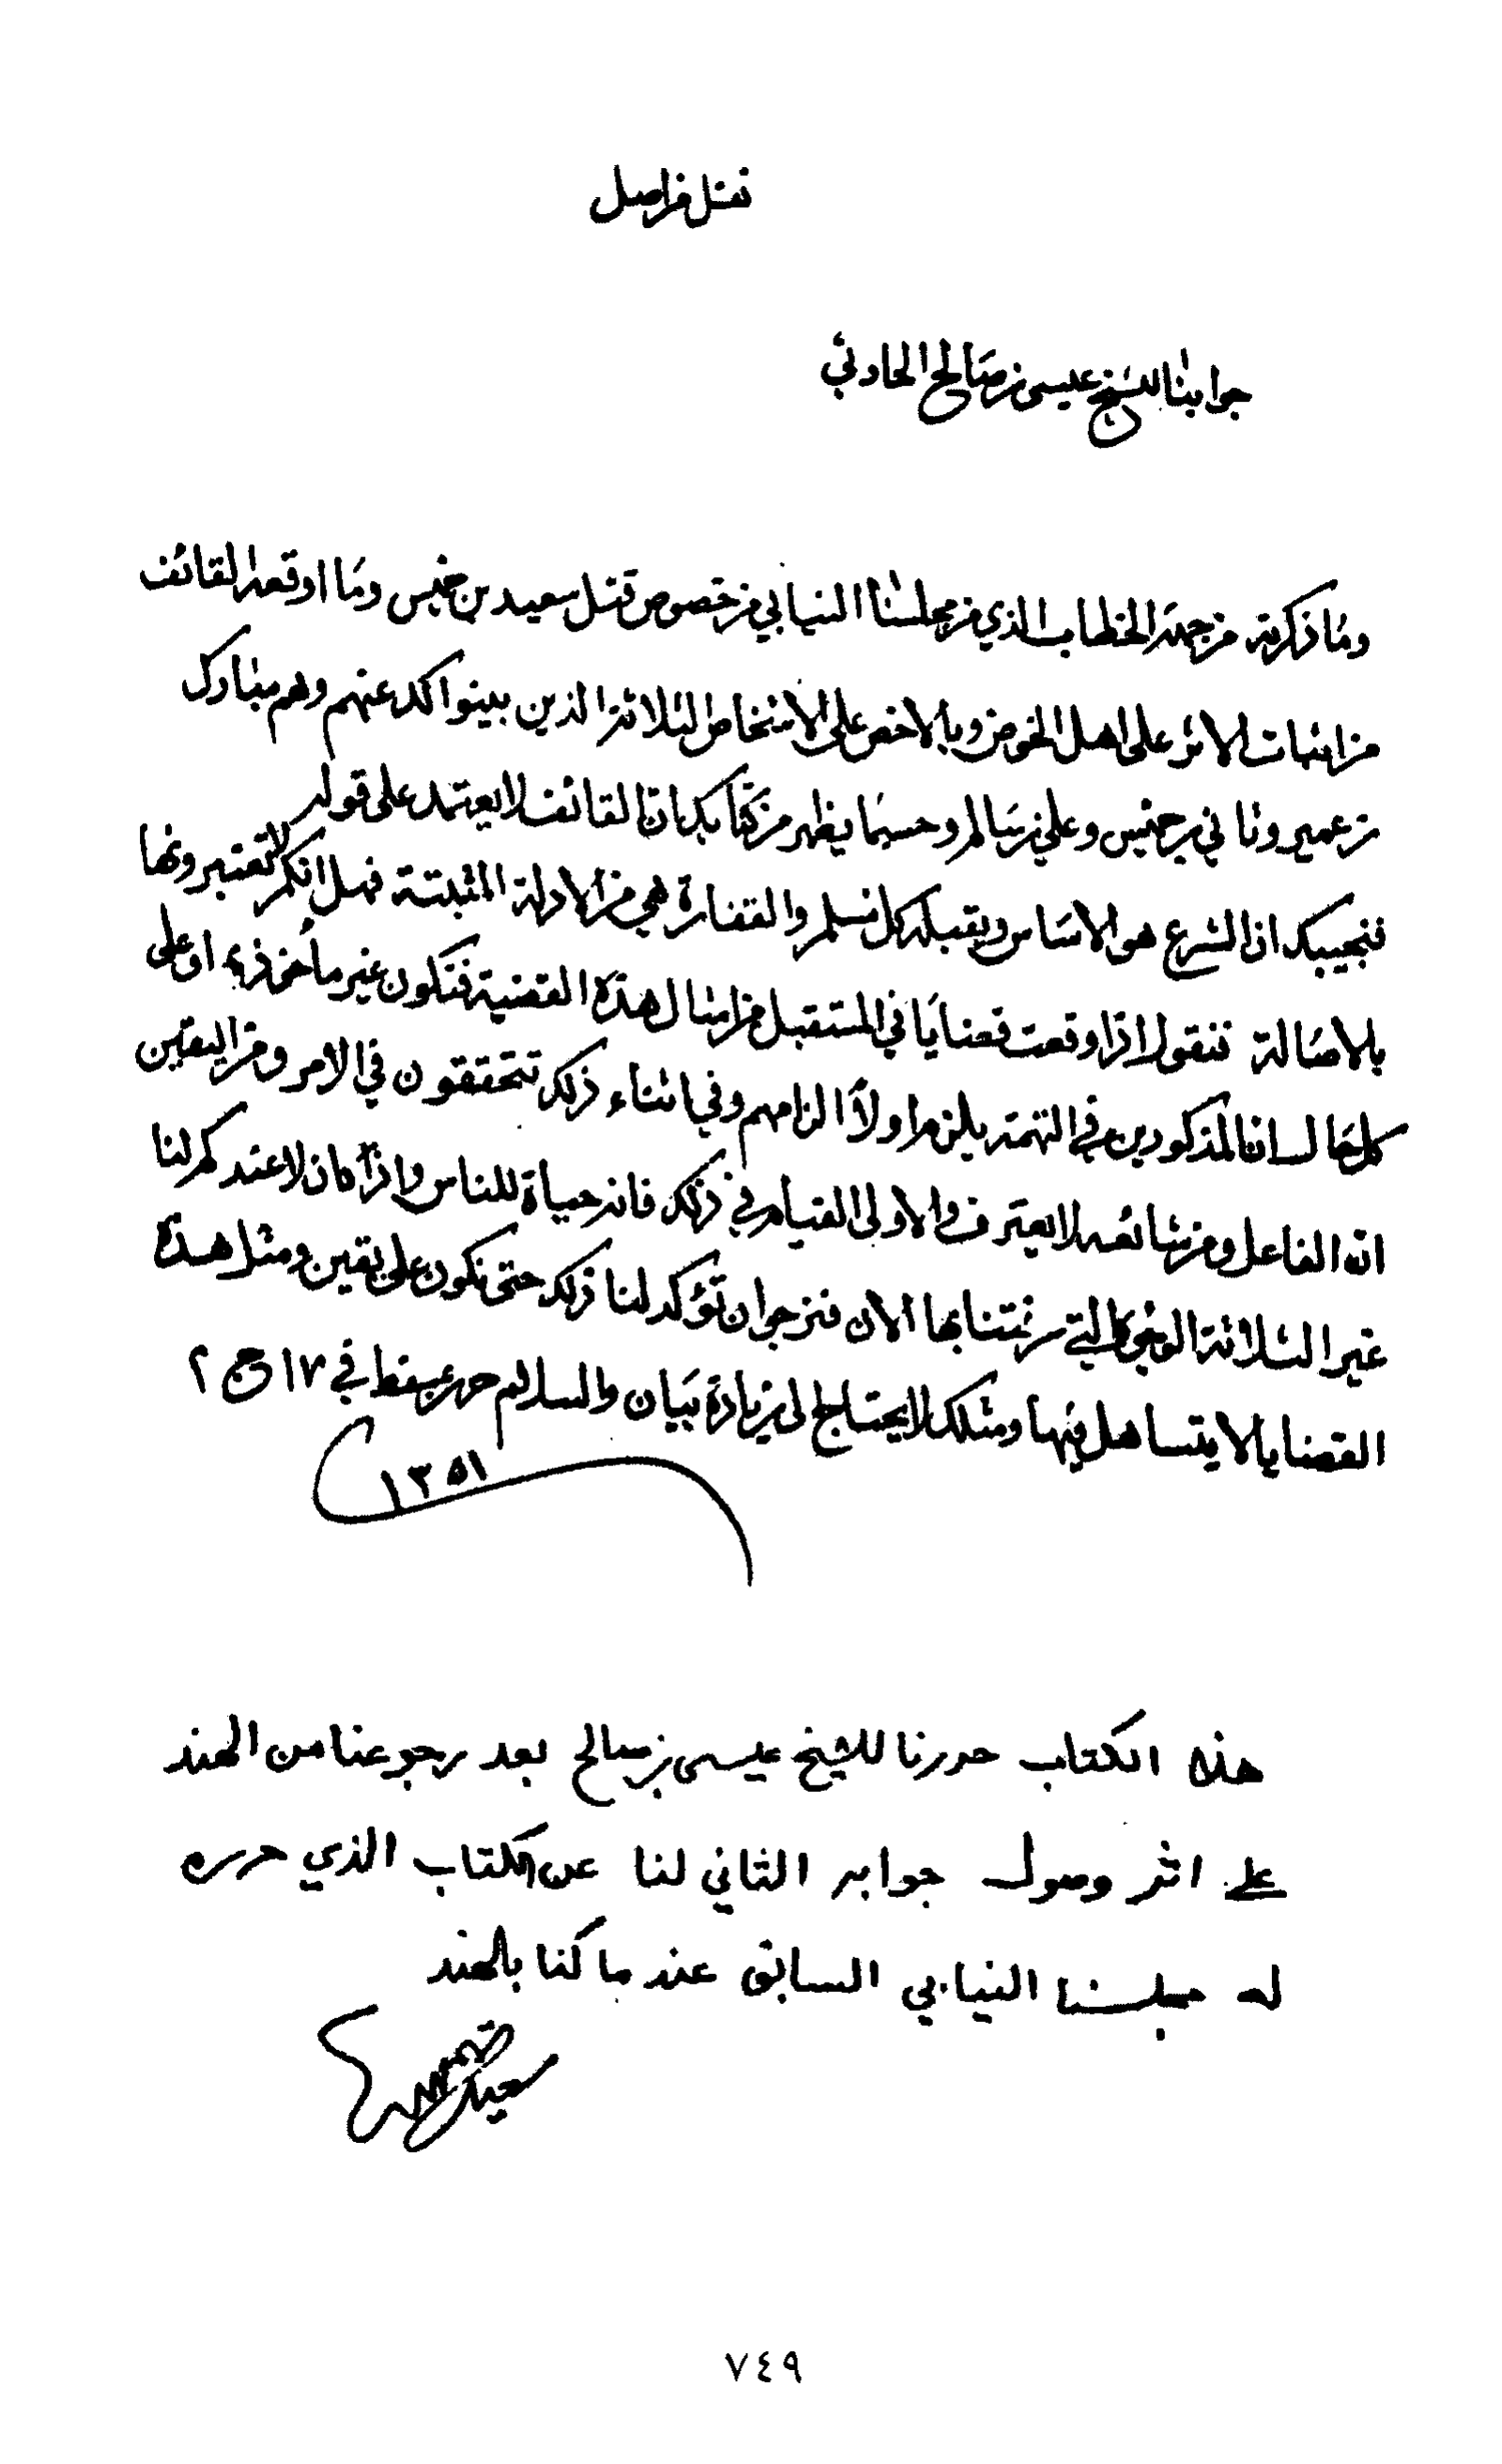 نقل من اصل
جوابنا للشيخ عيسى بن صالح الحارثي
وما ذكرته من جهة الخطاب الذي من مجلسنا النيابي من خصوص قتل سعيد بن خميس وما اوقعه القائف
من اثبات الاثر على اهل الخوض وبالاخص على الاشخاص الثلاثة الذين بينوا لك عنهم وهم مبارك
بن عمير وثاني بن خميس وعلي بن سالم وحسبما يظهر من كتابك ان القائف لا يعتمد على قوله
فنجيبك اذ الشرع هو الاساس ويقبله كل مسلم والقفارة هي من الادلة المثبتة فهل انكم لا تعتبرونها
بالاصالة فنقول اذا وقعت قضايا في المستقبل من امثال هذه القضية فتكون غير مأخوذ به او على
كل حال ان المذكورين في التهمة يلزم اولاً الزامهم وفي اثناء ذلك تتحققون في الامر ومن اليقين
ان الفاعل ومن شائعه لا يعترف والاولى القيام في ذلك فانه حياة للناس واذا كان لا عندكم لنا
غير الثلاثة التي عرفتنا بها الان فنرجو ان تؤكد لنا ذلك حتى نكون على يقين ومثل هذه
القضايا لا يتساهل فيها ومثلك لا يحتاج الى زيادة بيان والسلام حرر بمسقط في ١٧ ج ٢
١٣٥١
هذا الكتاب حررنا للشيخ عيسى بن صالح بعد رجوعنا من الهند
على اثر وصول جوابه الثاني لنا عن الكتاب الذي حرره
له مجلسنا النيابي السابق عند ما كنا بالهند
سعيد بن تيمور
٧٤٩